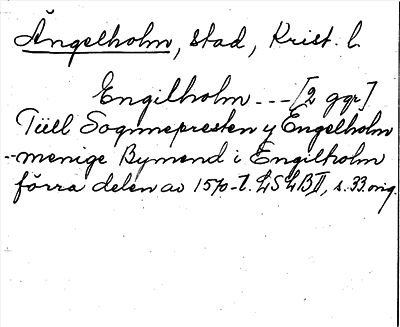 Ängelholm, stad, Krist. l.
Engilholm --- [2 ggr.]
Tiill Sognnepresten y Engelholm
--menige Bymend i Engilholm
förra delen av 1570-t. LSLB II, s. 33. orig.